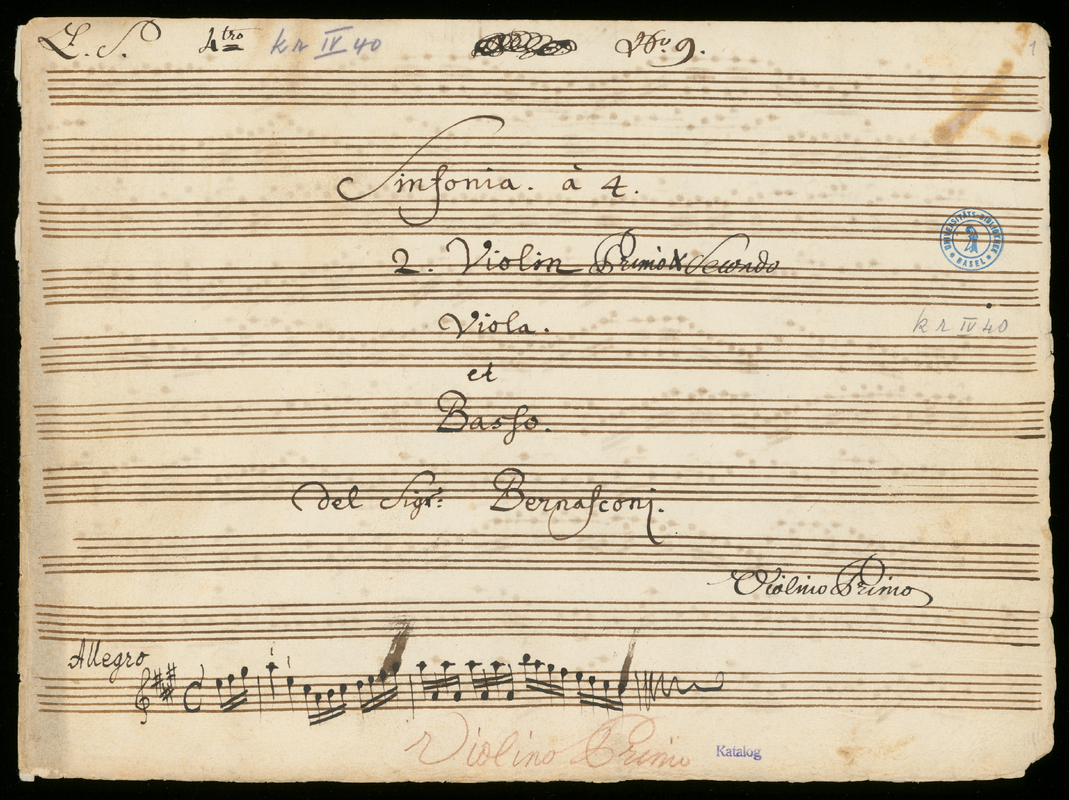 L. S. 4tro kr IV 40 No. 9. 1
Sinfonia. à 4.
2. Violin Primo & Secondo
UNIVERSITÄTS-BIBLIOTHEK BASEL
Viola.
kr IV 40
et
Basso.
del Sigr: Bernasconj.
Violino Primo
Allegro
Violino Primo
Katalog